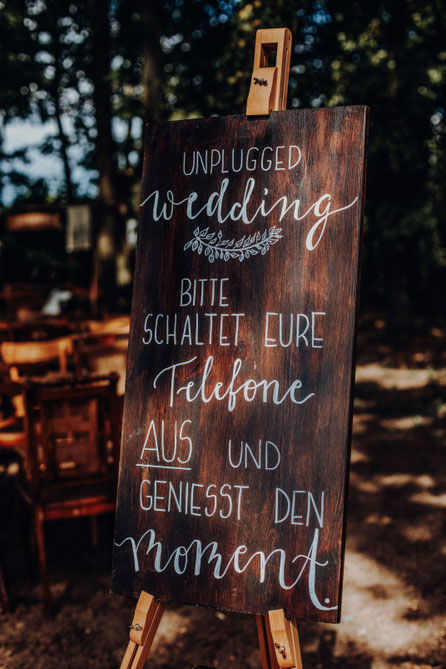 UNPLUGGED
wedding
BITTE
SCHALTET EURE
Telefone
AUS UND
GENIESST DEN
Moment.